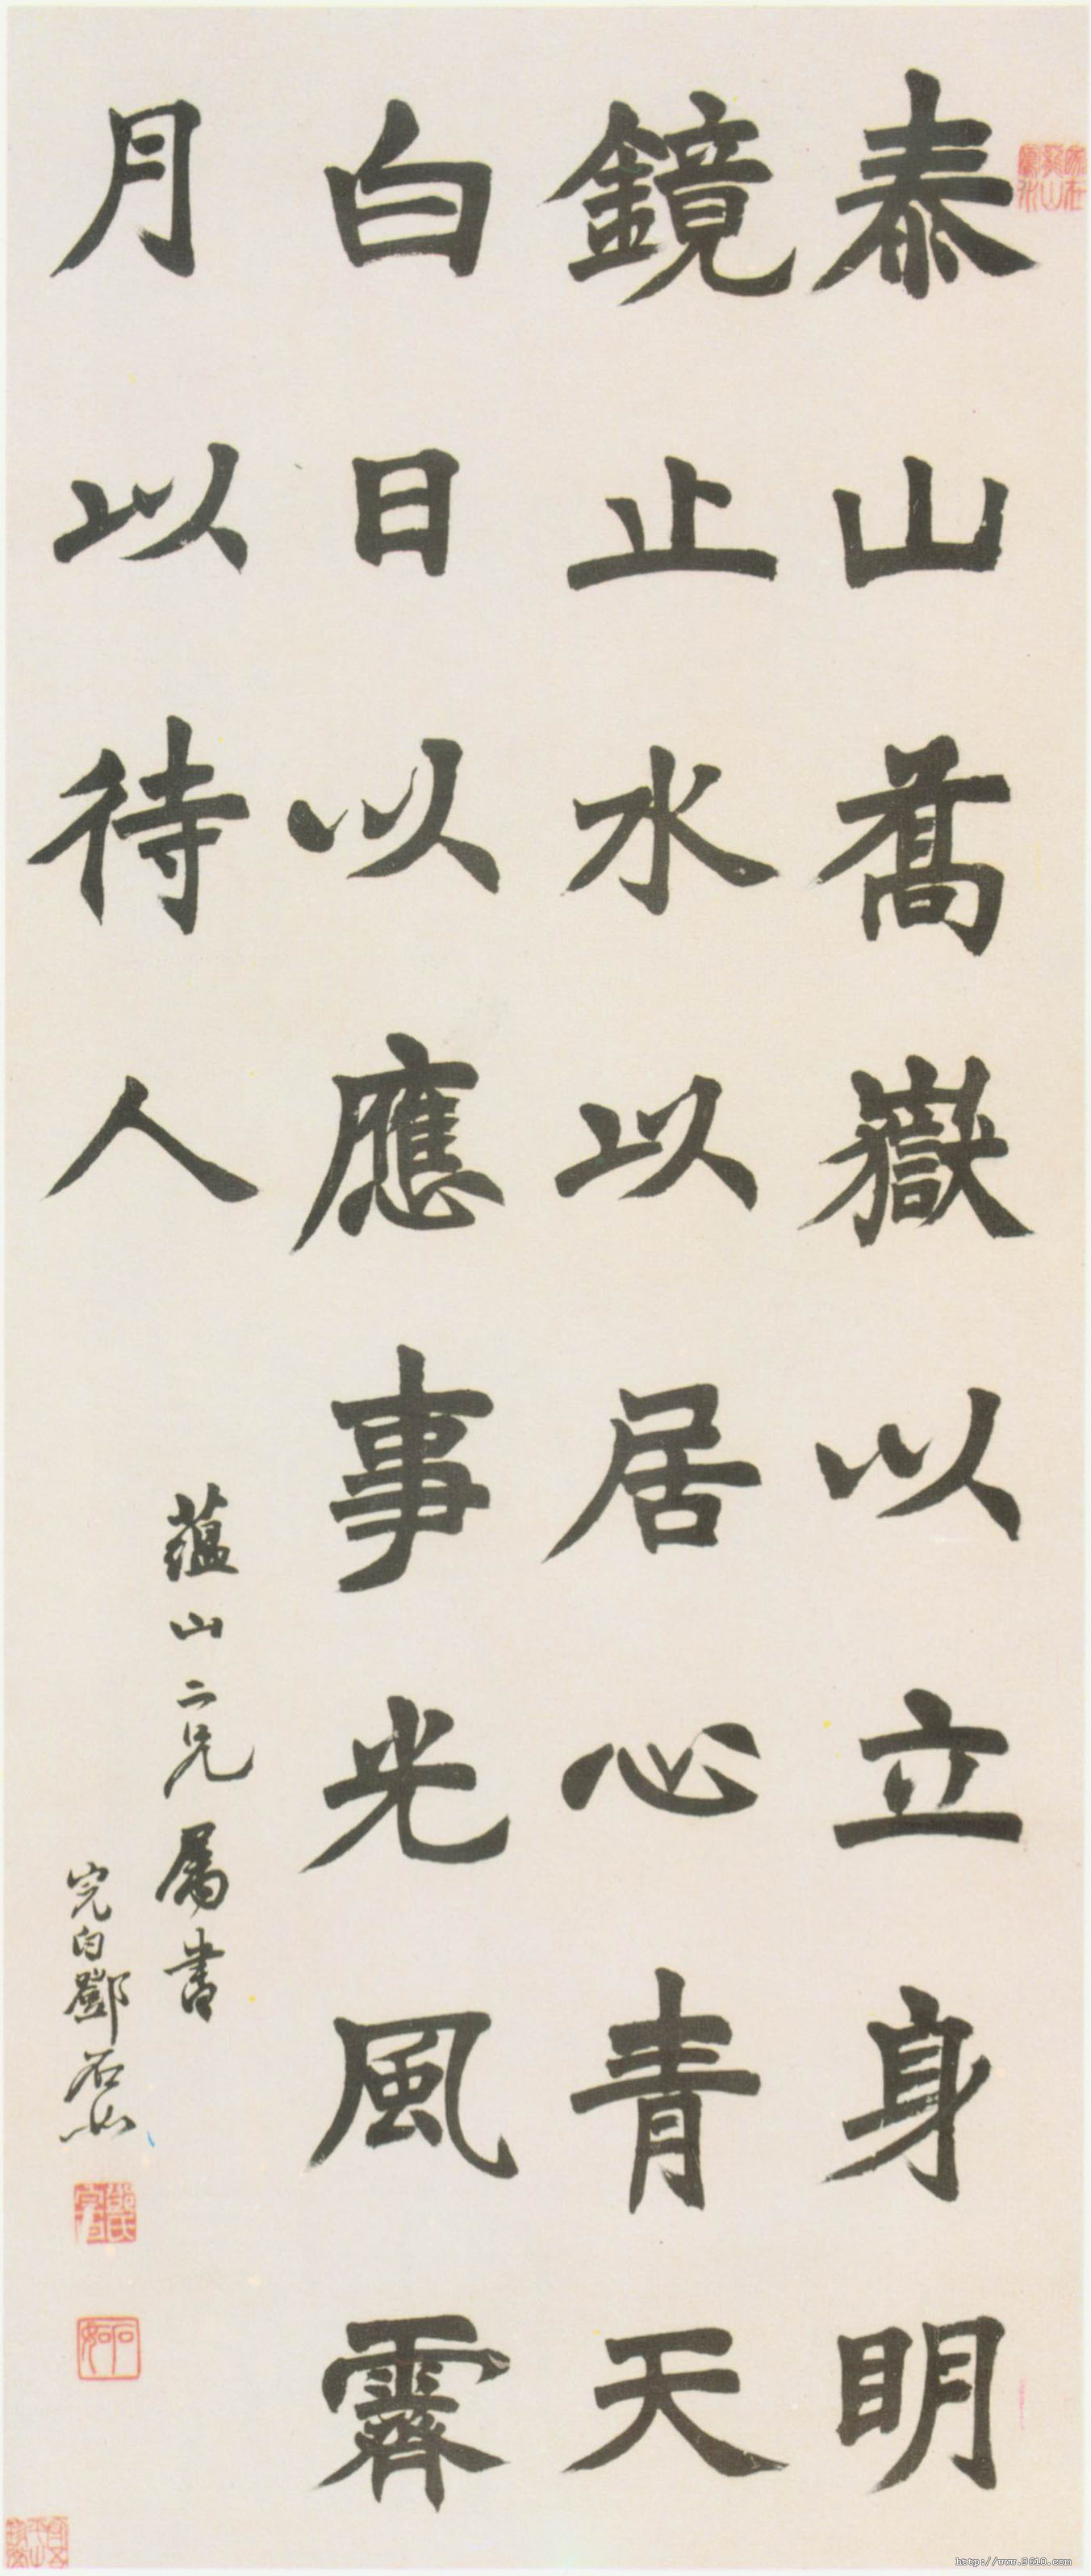 泰山喬嶽以立身明
鏡止水以居心青天
白日以應事光風霽
月以待人
蘊山二兄屬書
完白鄧石如
石如
http://www.9610.com